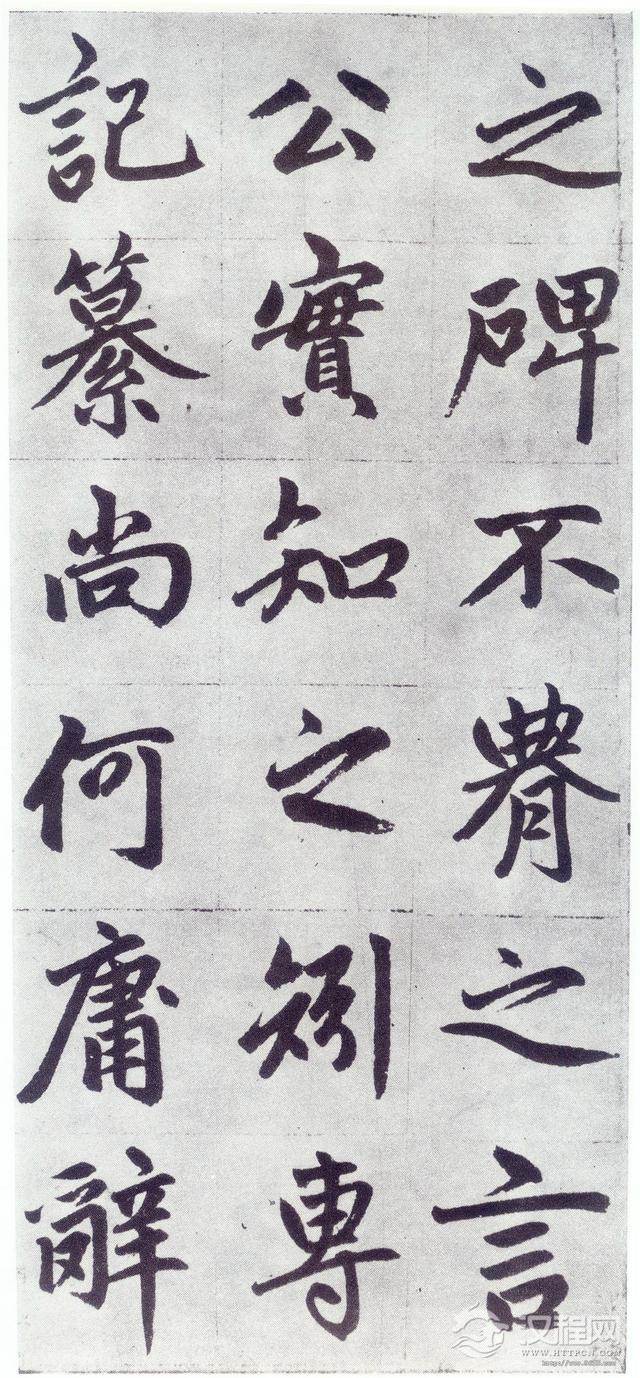 之碑不腆之言
公實知之矧專
記纂尚何庸辭
汉程网
WWW.HTTPCN.COM